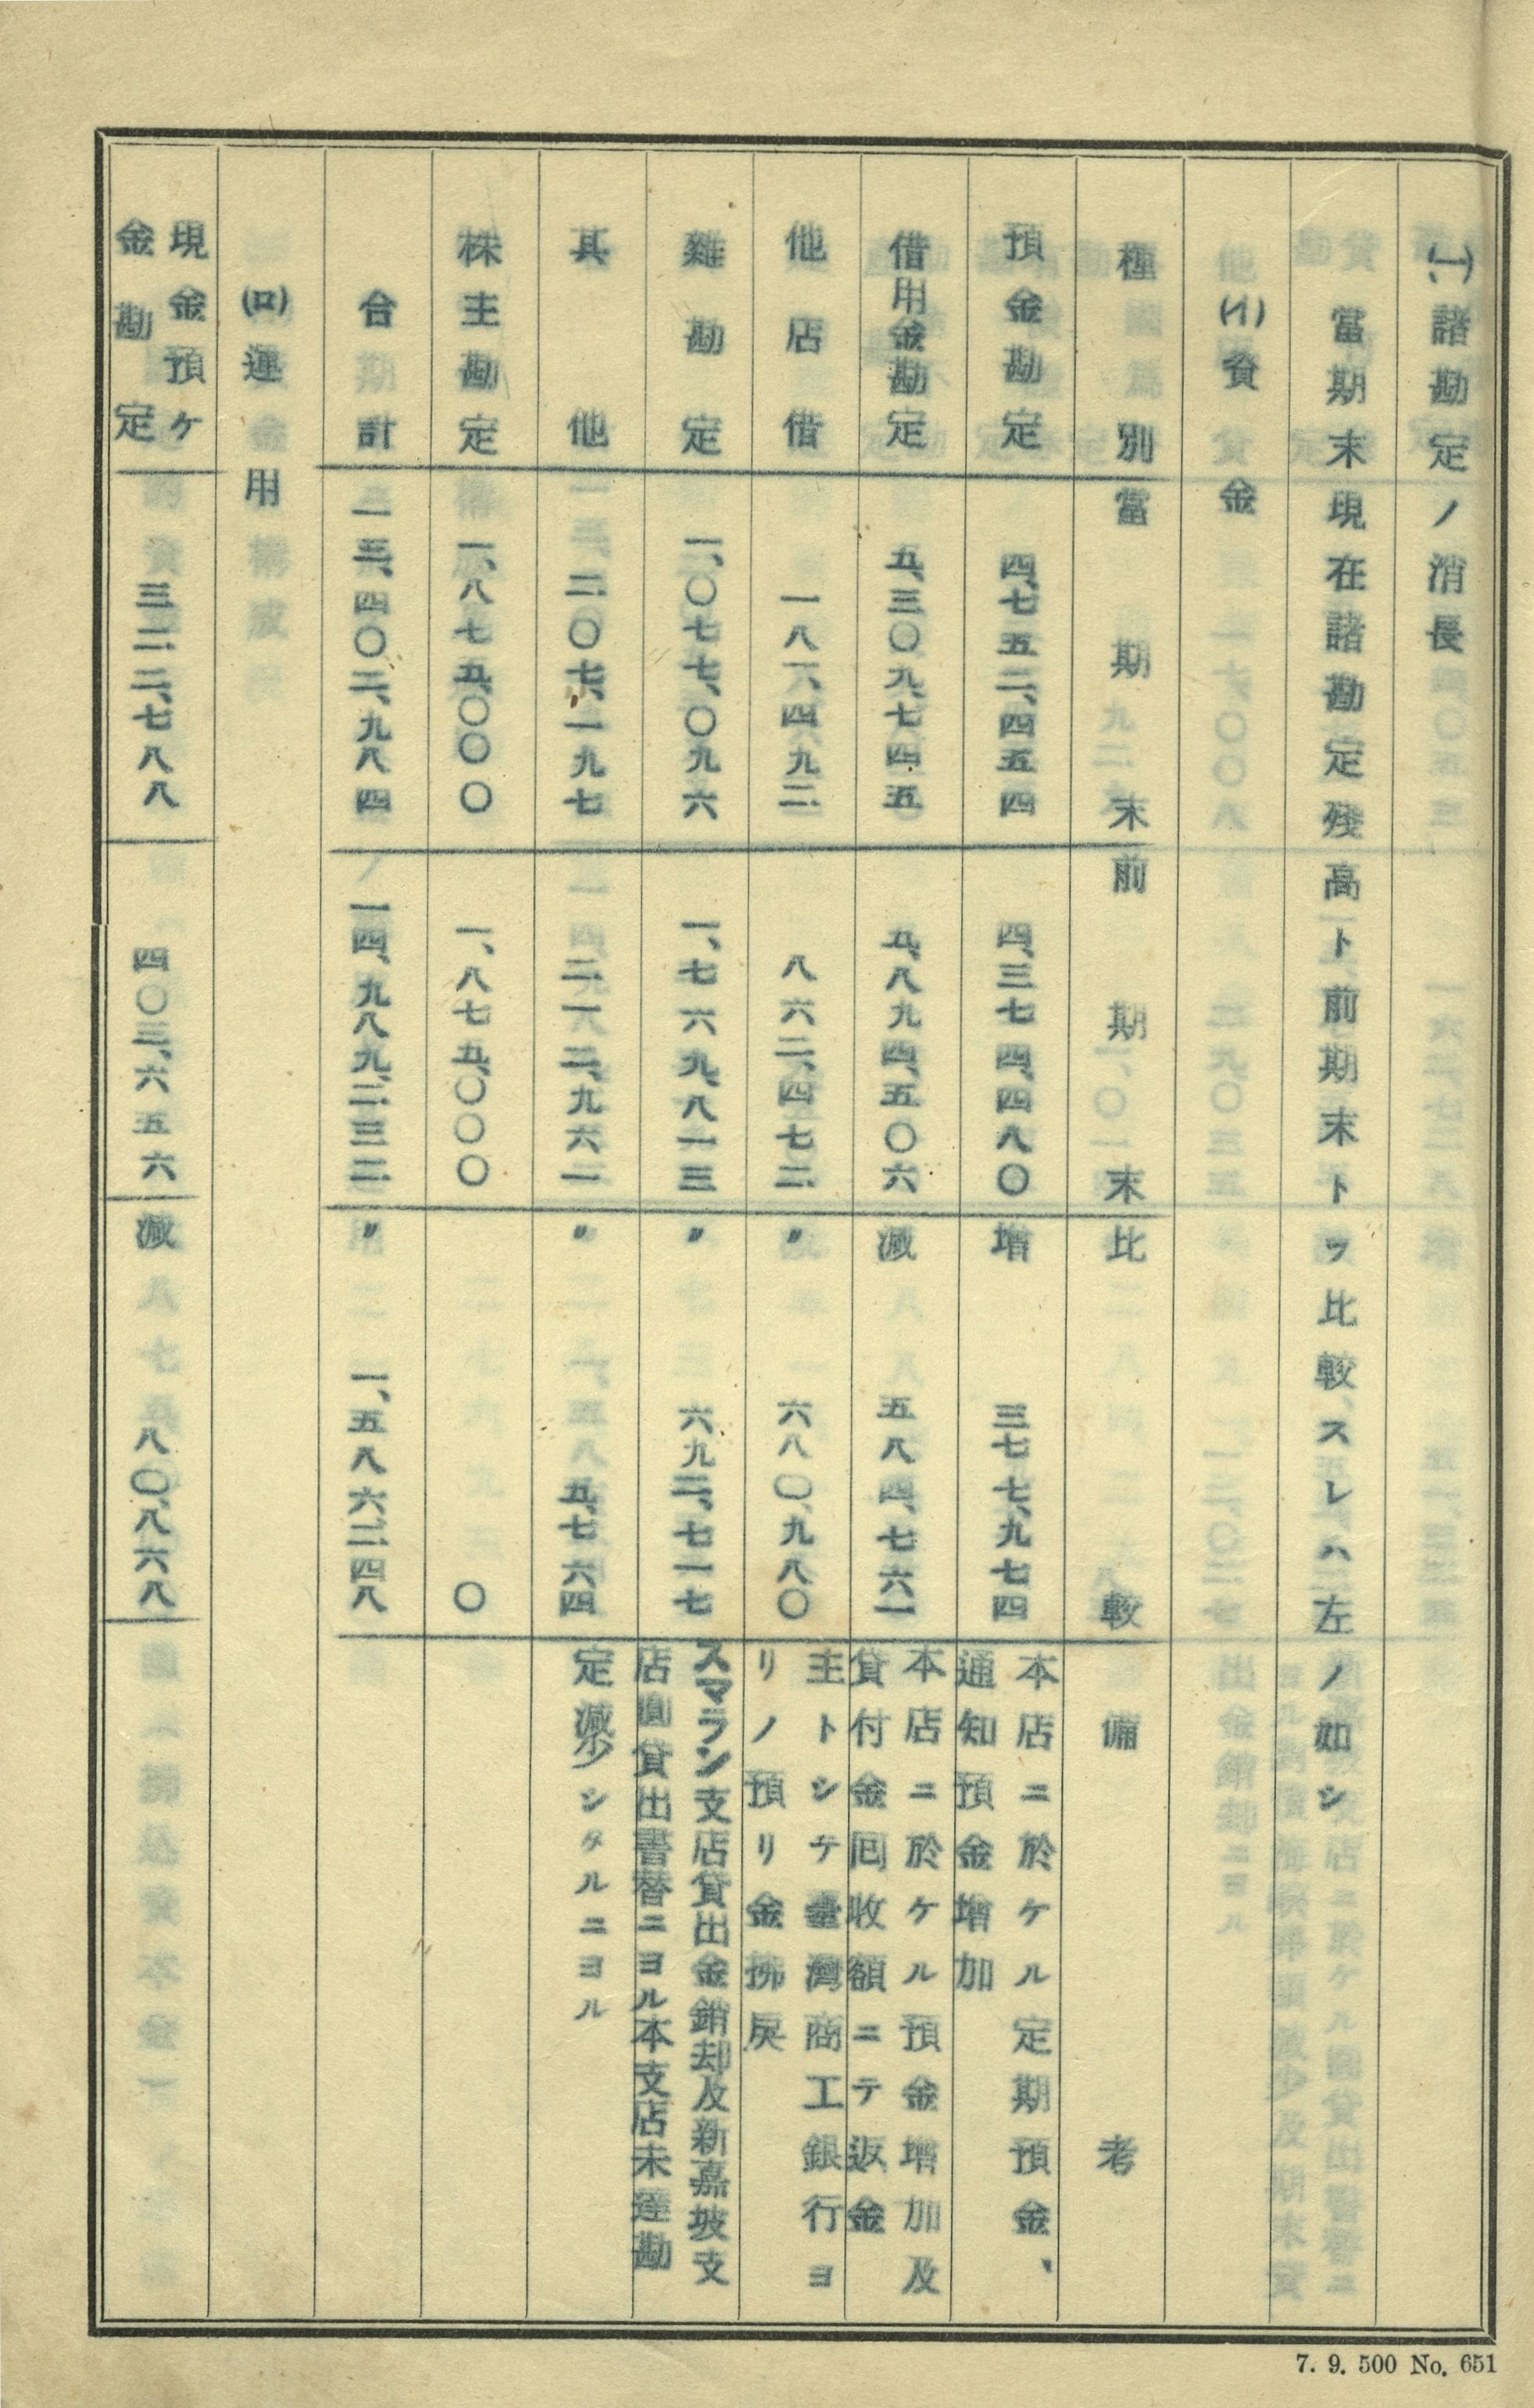 (一)、諸勘定ノ消長
當期末現在諸勘定殘高ト前期末トヲ比較スレハ左ノ如シ
(イ)資金
種別 當期末 前期末 比較 備考
預金勘定 四、七五二、四五四 四、三七四、四八〇 增 三七七、九七四 本店ニ於ケル定期預金、
通知預金增加
借用金勘定 五、三〇九、七四五 五、八九四、五〇六 減 五八四、七六一 本店ニ於ケル預金增加及
貸付金囘收額ニテ返金
他店借 一八一、四九二 八六二、四七二 〃 六八〇、九八〇 主トシテ臺灣商工銀行ヨ
リノ預リ金拂戾
雜勘定 一、〇七七、〇九六 一、七六九、八一三 〃 六九二、七一七 スマラン支店貸出金銷却及新嘉坡支
店圓貸出書替ニヨル本支店未達勘
定減少シタルニヨル
其他 二〇七、一九七 二一二、九六一 〃 五、七六四
株主勘定 一、八七五、〇〇〇 一、八七五、〇〇〇 〇
合計 一三、四〇二、九八四 一四、九八九、二三二 〃 一、五八六、二四八
(ロ)運用
現金預ケ
金勘定 三二二、七八八 四〇三、六五六 減 八〇、八六八
7. 9. 500 No. 651